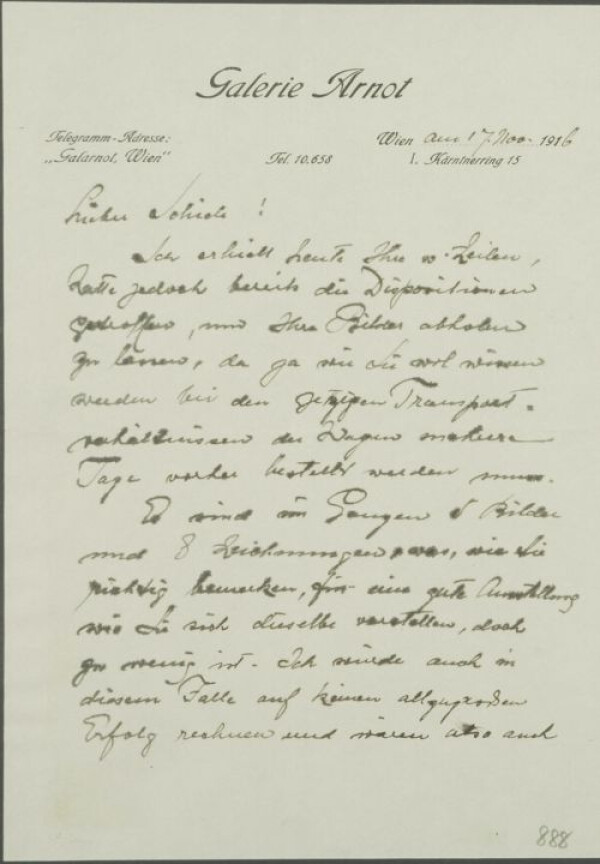 Galerie Arnot
Telegramm-Adresse:
„Galarnot, Wien"
Tel. 10.658
Wien am 17. Nov. 1916
I. Kärntnerring 15
Lieber Schiele!
Ich erhielt heute Ihre w. Zeilen,
hatte jedoch bereits die Dispositionen
getroffen, um Ihre Bilder abholen
zu lassen, da ja wie Sie wol wissen
werden bei den jetzigen Transport-
verhältnissen der Wagen mehrere
Tage vorher bestellt werden muss.
Es sind im Ganzen 8 Bilder
und 8 Zeichnungen, was, wie Sie
richtig bemerken, für eine gute Ausstellung
wie Sie sich dieselbe vorstellen, doch
zu wenig ist. Ich würde auch in
diesem Falle auf keinen allzugroßen
Erfolg rechnen und wären also auch
888